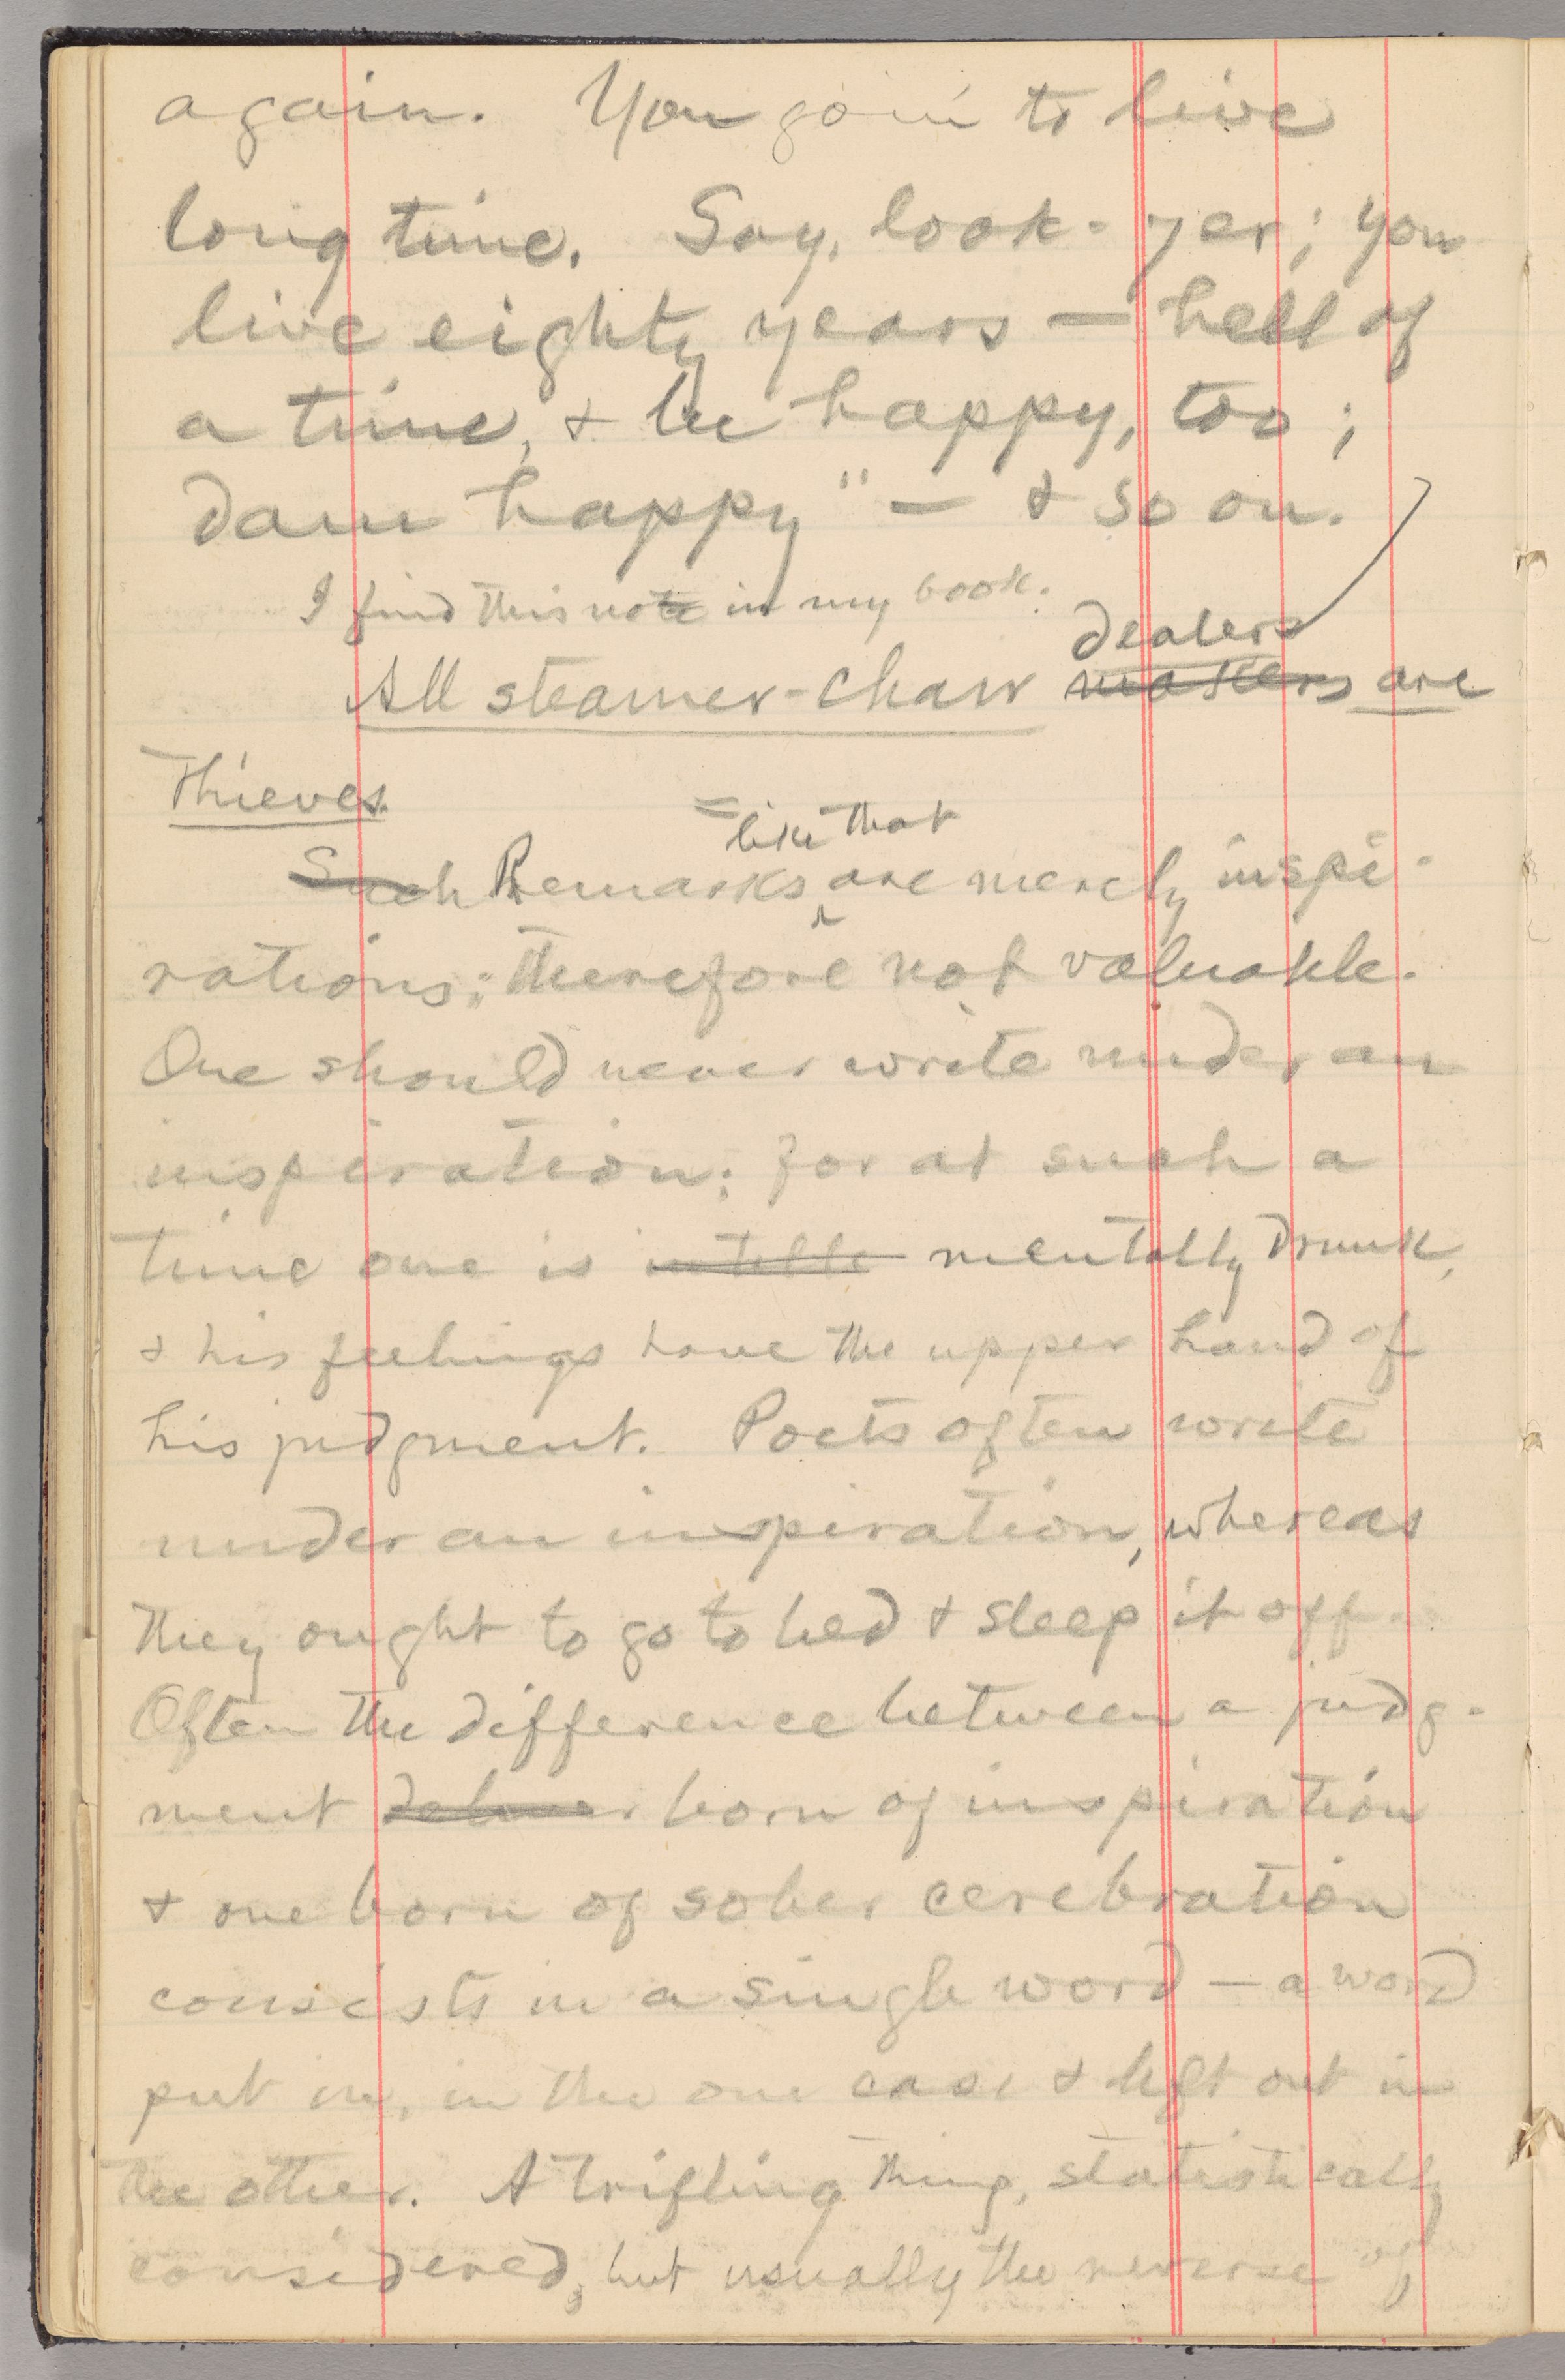 again. You goin' to live
long time. Say, look-yer; you
live eighty years — hell of
a time, & be happy, too;
dam happy" — & so on.
I find this note in my book:
dealers
All steamer-chair makers are
Thieves.
= like that
Such Remarks are merely inspi-
rations; therefore not valuable.
One should never write under an
inspiration; for at such a
time one is intelle mentally drunk,
& his feelings have the upper hand of
his judgment. Poets often write
under an inspiration, whereas
they ought to go to bed & sleep it off.
Often the difference between a judg-
ment born of inspiration
& one born of sober cerebration
consists in a single word — a word
put in, in the one case & left out in
the other. A trifling thing, statistically
considered, but usually the reverse of